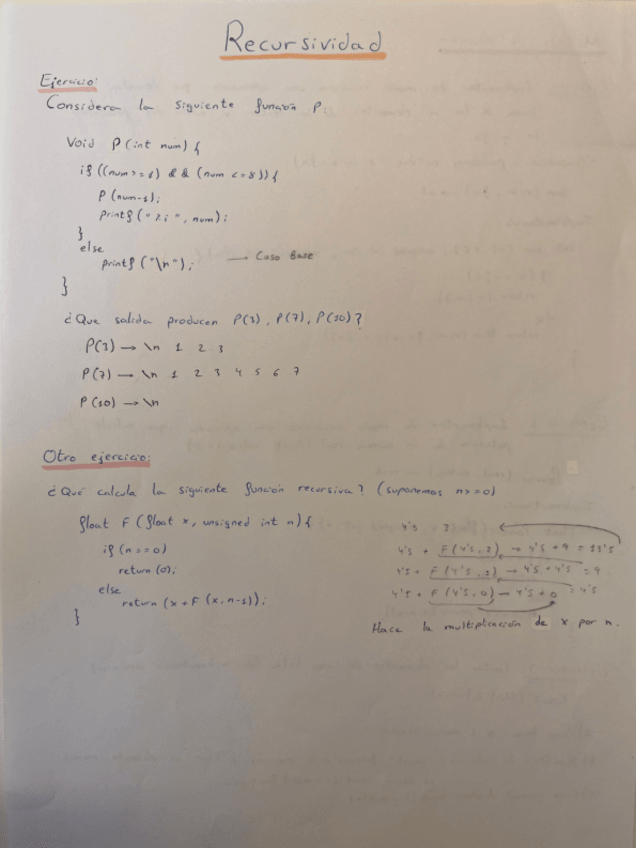 Recursividad
Ejercicio:
Considera la siguiente función P:
Void P(int num) {
if ((num >= 1) && (num <= 8)) {
P(num-1);
printf("%i", num);
}
else
printf("\n"); → Caso Base
}
¿Que salida producen P(3), P(7), P(10)?
P(3) → \n 1 2 3
P(7) → \n 1 2 3 4 5 6 7
P(10) → \n
Otro ejercicio:
¿Qué calcula la siguiente función recursiva? (suponemos n>=0)
float F(float x, unsigned int n) {
if (n==0)
return (0);
else
return (x + F(x, n-1));
}
4'5 3
4'5 + F(4'5, 2) → 4'5 + 9 = 13'5
4'5 + F(4'5, 1) → 4'5 + 4'5 = 9
4'5 + F(4'5, 0) → 4'5 + 0 = 4'5
Hace la multiplicación de x por n.